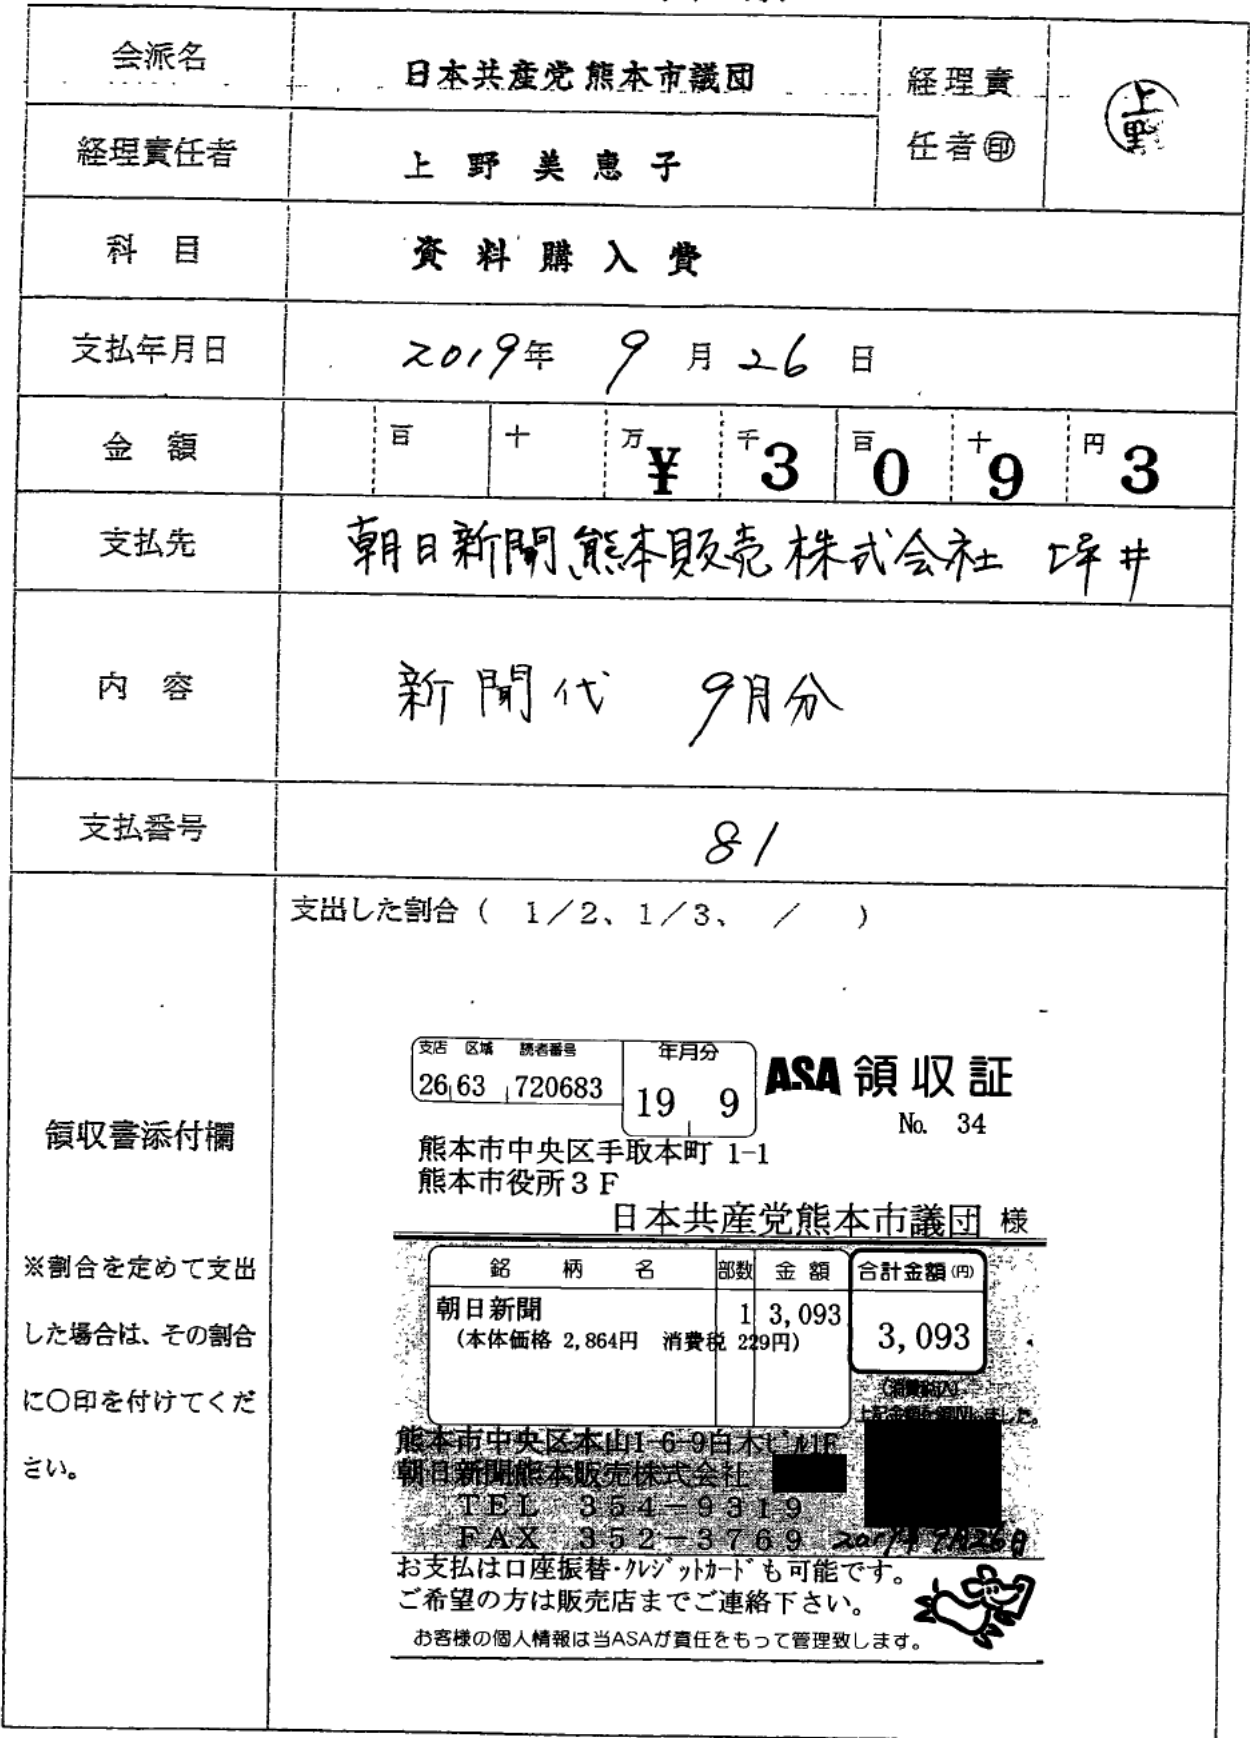 会派名 日本共産党熊本市議団 経理責任者㊞ 上野
経理責任者 上野美恵子
科目 資料購入費
支払年月日 2019年 9月26日
金額 百 十 万 ¥ 千 3 百 0 十 9 円 3
支払先 朝日新聞熊本販売株式会社 坪井
内容 新聞代 9月分
支払番号 81
領収書添付欄
※割合を定めて支出
した場合は、その割合
に〇印を付けてくだ
さい。
支出した割合( 1/2、1/3、 / )
支店 区域 読者番号 年月分
26 63 720683 19 9
ASA 領収証
No. 34
熊本市中央区手取本町 1-1
熊本市役所3F
日本共産党熊本市議団 様
銘柄名 部数 金額 合計金額(円)
朝日新聞 1 3,093 3,093
(本体価格 2,864円 消費税 229円)
(消費税込)
上記金額を領収しました。
熊本市中央区本山1-6-9白木ビル1F
朝日新聞熊本販売株式会社
TEL 354-9319
FAX 352-3769
2019年9月26日
お支払は口座振替・クレジットカードも可能です。
ご希望の方は販売店までご連絡下さい。
お客様の個人情報は当ASAが責任をもって管理致します。